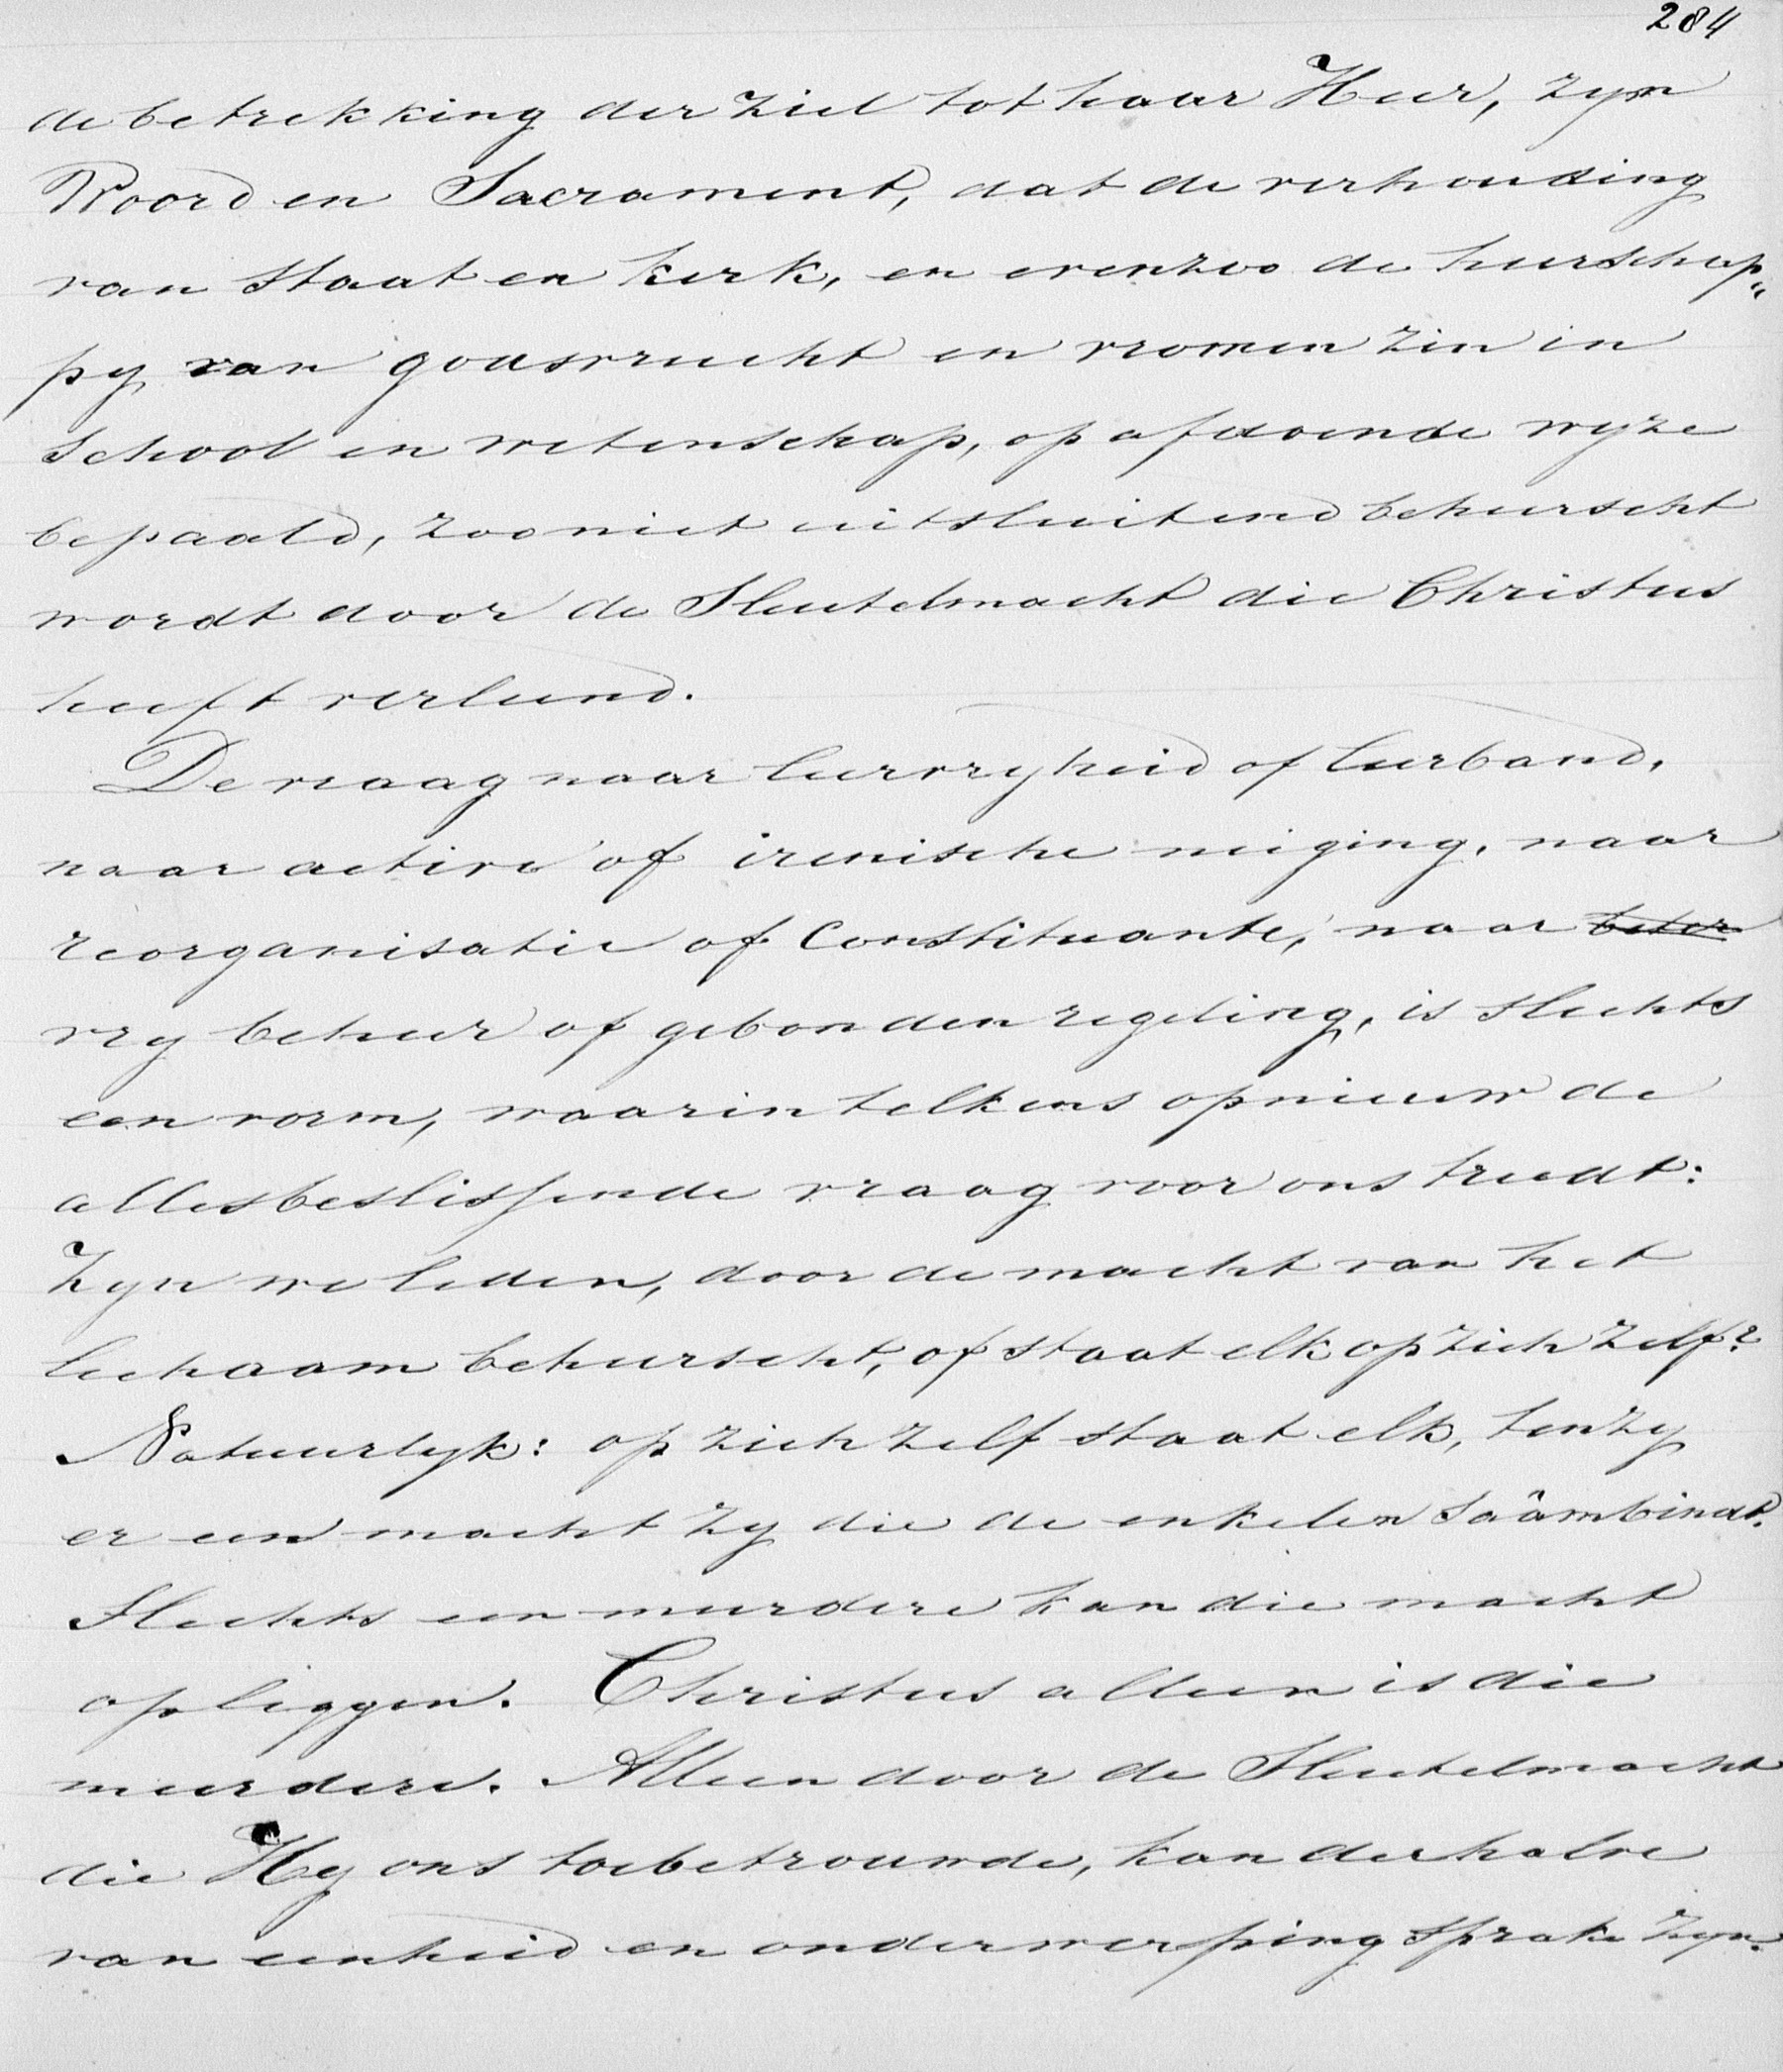 284
de betrekking der ziel tot haar Heer, zyn
Woord en Sacrament, dat de verhouding
van Staat en kerk, en evenzoo de heerschap„
py van godsvrucht en vromen zin in
school en wetenschap, op afdoende wyze
bepaald, zoo niet uitsluitend beheerscht
wordt door de Sleutelmacht die Christus
heeft verleend.
De vraag naar leervryheid of leerband,
naar active of irenische neiging, naar
reorganisatie of Constituante, naar beter
vry beheer of gebonden regeling, is slechts
een vorm, waarin telkens opnieuw de
allesbeslissende vraag voor ons treedt:
Zyn we leden, door de macht van het
lichaam beheerscht, of staat elk op zich zelf?
Natuurlyk: op zich zelf staat elk, tenzy
er een macht zy die de enkelen saâmbindt.
Slechts een meerdere kan die macht
opleggen. Christus alleen is die
meerdere. Alleen door de Sleutelmacht
die Hy ons toebetrouwde, kan derhalve
van eenheid en onderwerping sprake zyn.